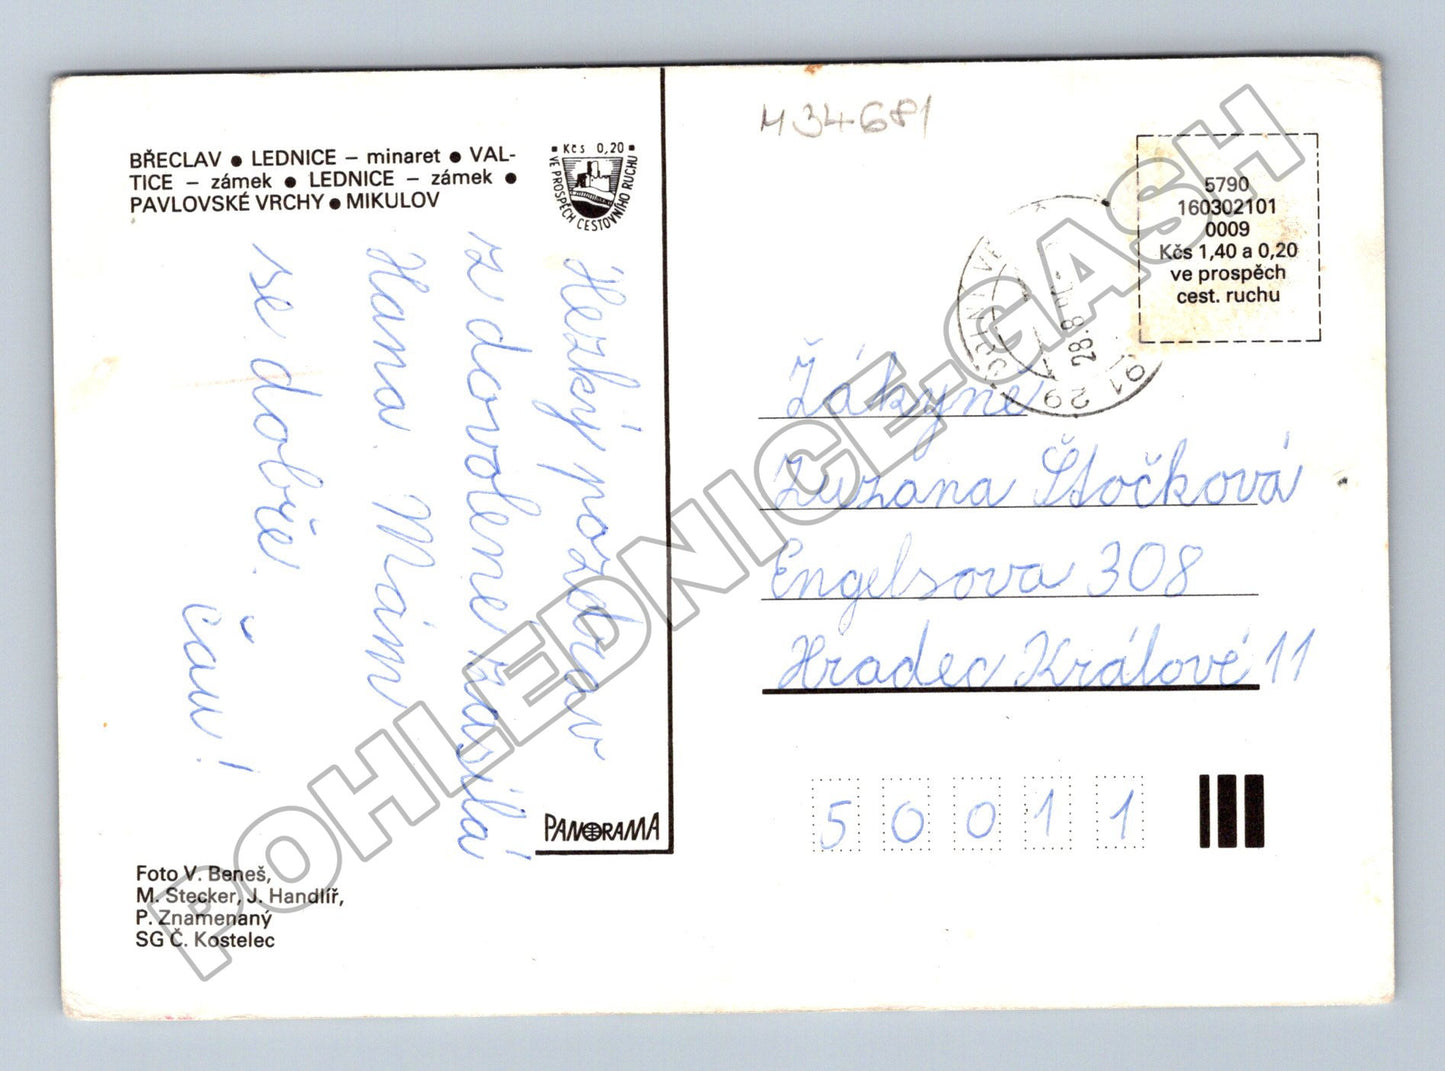 H34681
BŘECLAV ● LEDNICE – minaret ● VAL-
TICE – zámek ● LEDNICE – zámek ●
PAVLOVSKÉ VRCHY ● MIKULOV
▪ Kčs 0,20 ▪
VE PROSPĚCH CESTOVNÍHO RUCHU
5790
160302101
0009
Kčs 1,40 a 0,20
ve prospěch
cest. ruchu
28.8
691 29
Hezký pozdrav
z dovolené zasílá
Hana. Mám
se dobře.
čau!
Žákyně
Zuzana Štočková
Engelsova 308
Hradec Králové 11
50011
PANORAMA
Foto V. Beneš,
M. Stecker, J. Handlíř,
P. Znamenaný
SG Č. Kostelec
POHLEDNICE-GASH